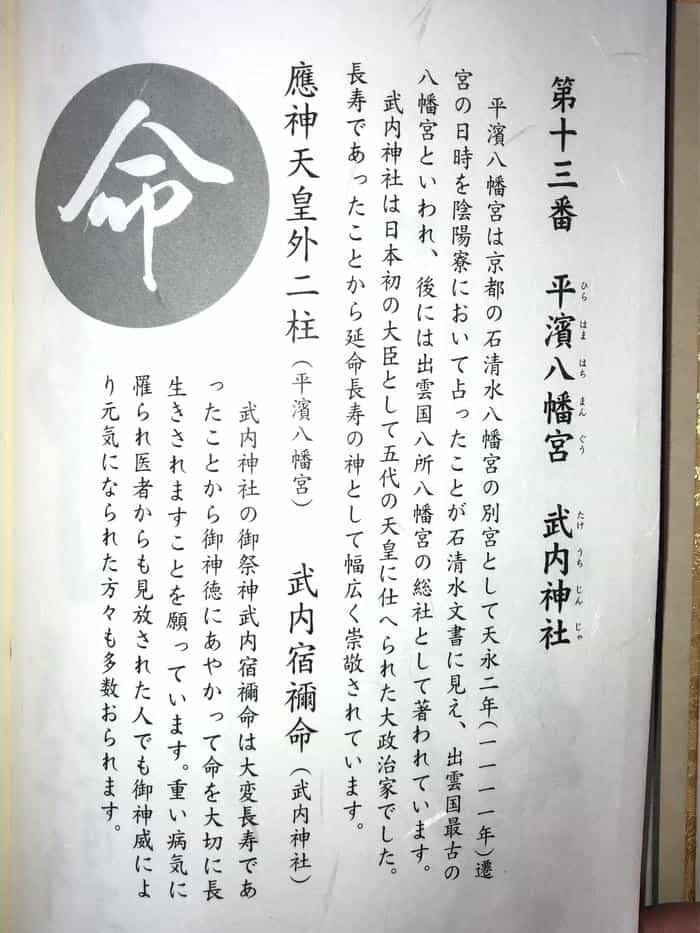 第十三番 平濱八幡宮 武内神社
ひら はま はち まん ぐう たけ うち じん じゃ
平濱八幡宮は京都の石清水八幡宮の別宮として天永二年(一一一一年)遷
宮の日時を陰陽寮において占ったことが石清水文書に見え、出雲国最古の
八幡宮といわれ、後には出雲国八所八幡宮の総社として著われています。
武内神社は日本初の大臣として五代の天皇に仕へられた大政治家でした。
長寿であったことから延命長寿の神として幅広く崇敬されています。
應神天皇外二柱(平濱八幡宮) 武内宿禰命(武内神社)
命
武内神社の御祭神武内宿禰命は大変長寿であ
ったことから御神徳にあやかって命を大切に長
生きされますことを願っています。重い病気に
罹られ医者からも見放された人でも御神威によ
り元気になられた方々も多数おられます。